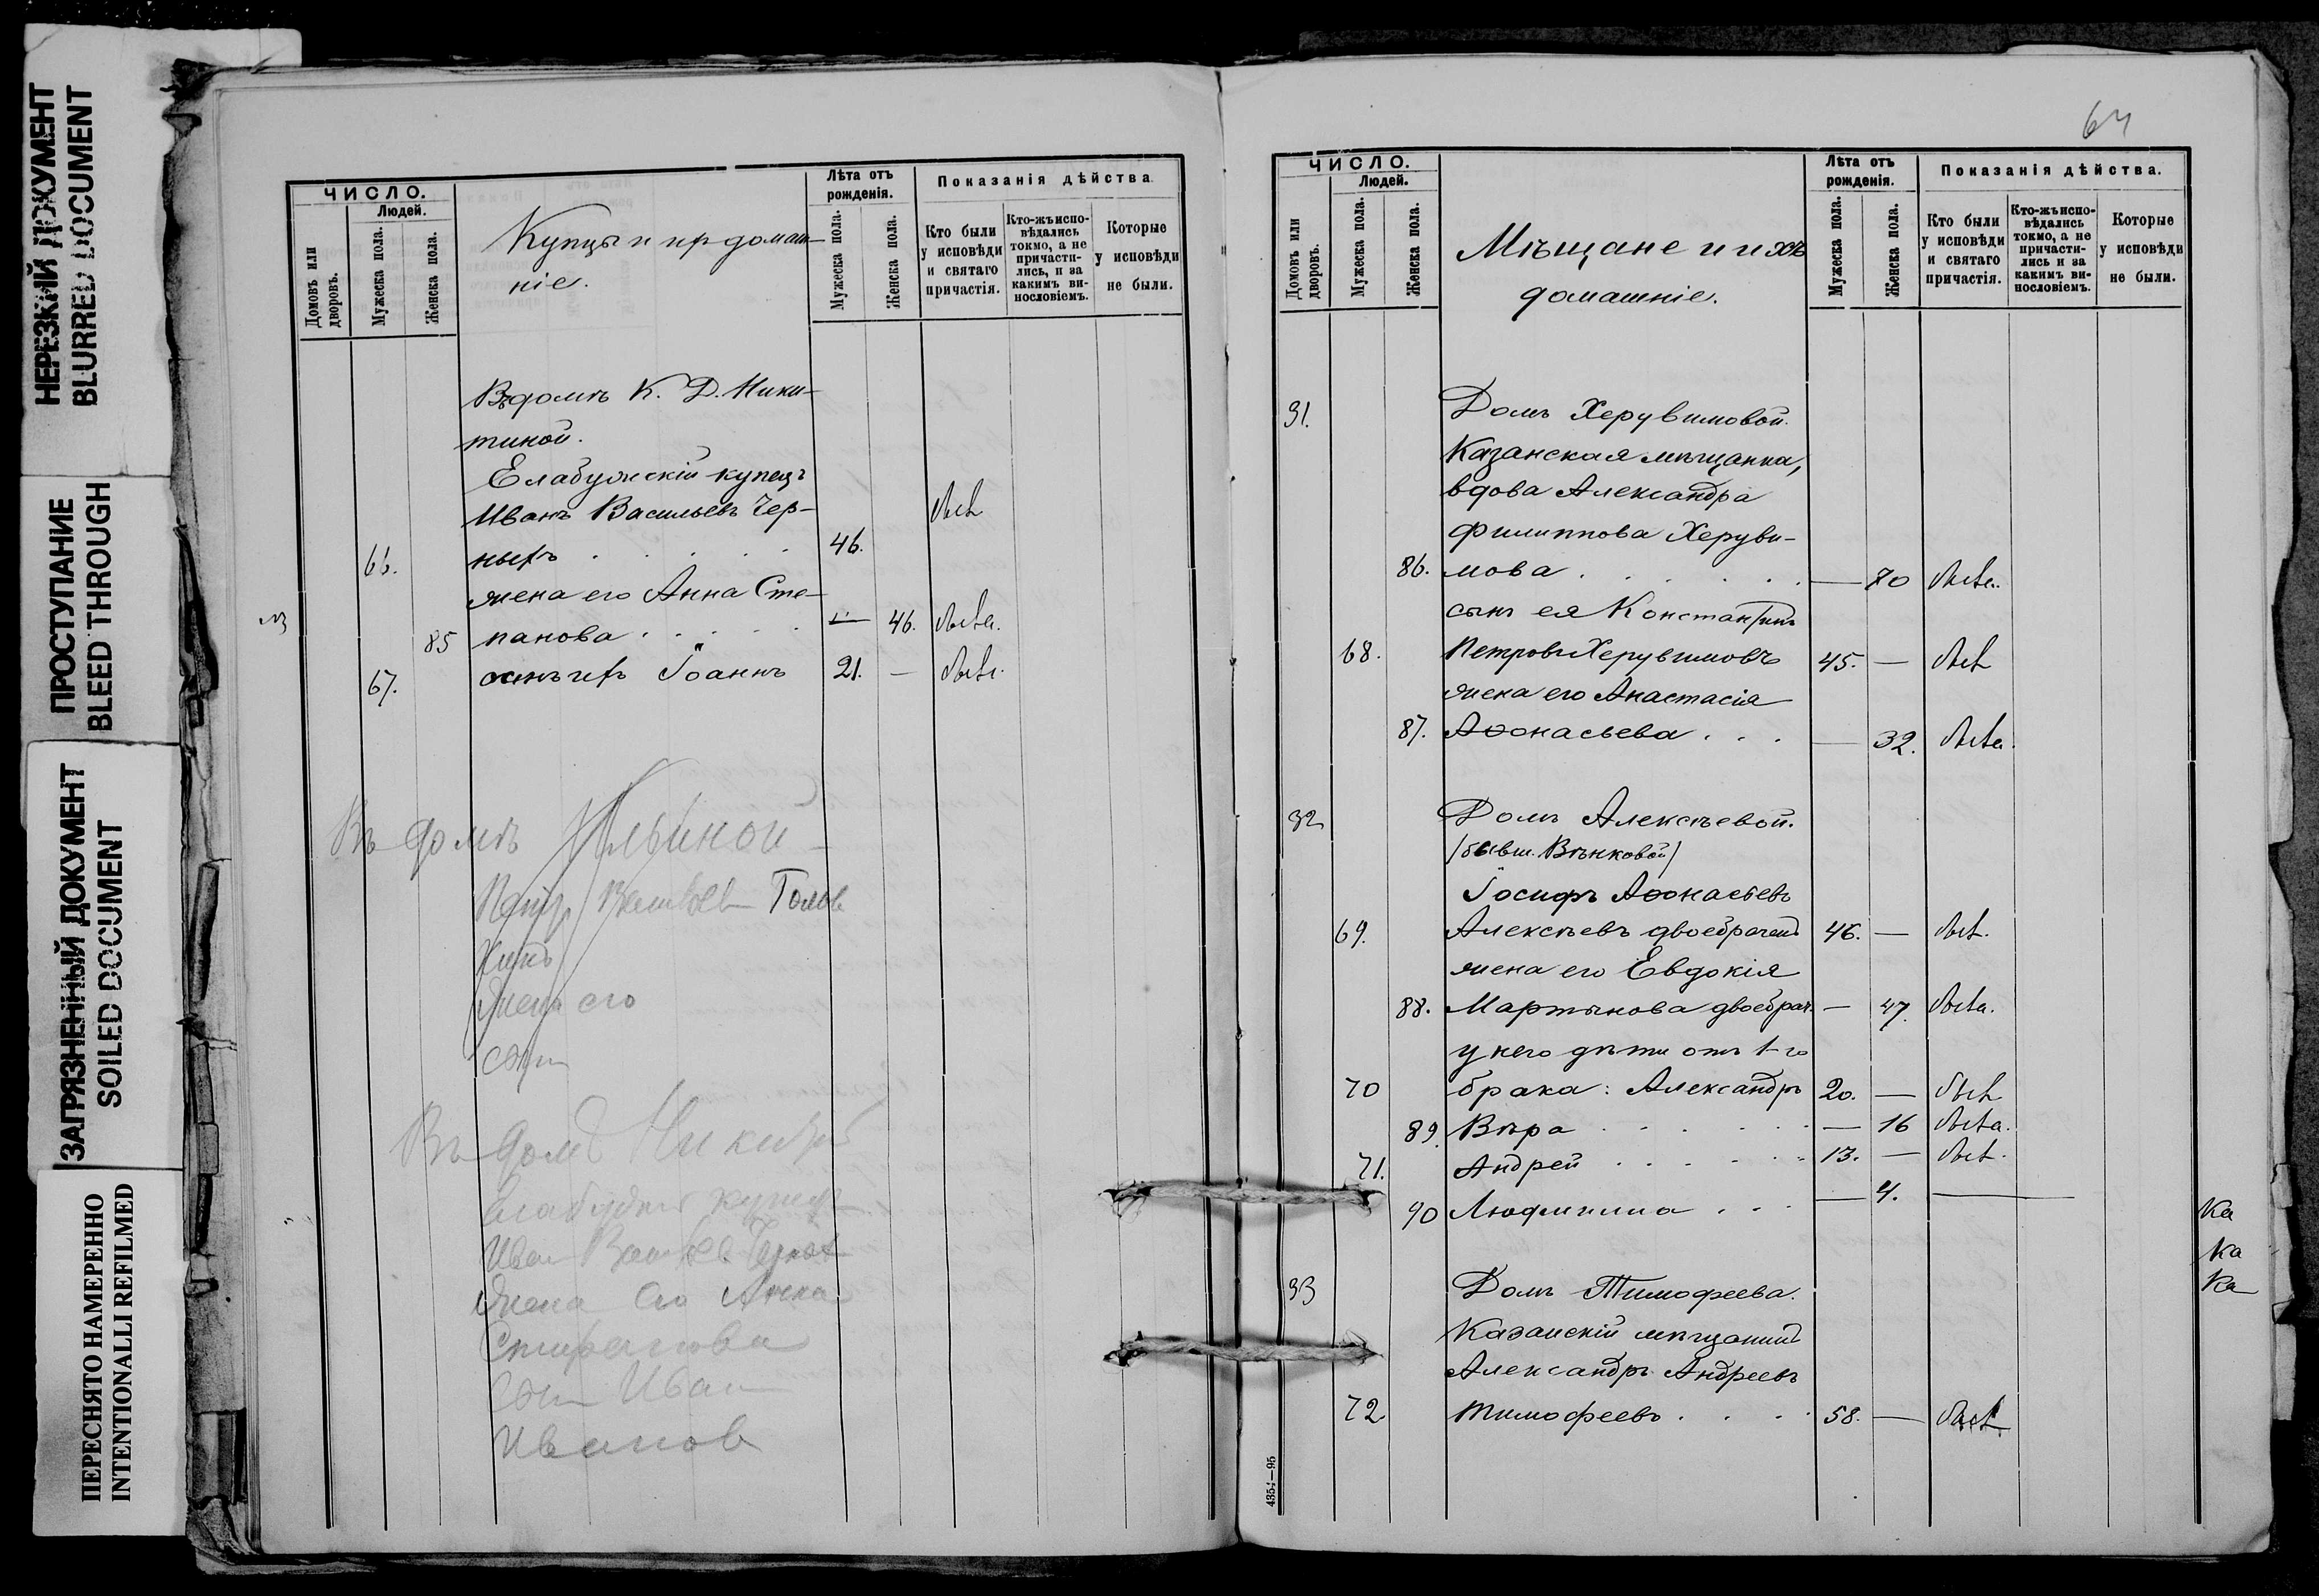 НЕРЕЗКИЙ ДОКУМЕНТ
BLURRED DOCUMENT
ПРОСТУПАНИЕ
BLEED THROUGH
ЗАГРЯЗНЕННЫЙ ДОКУМЕНТ
SOILED DOCUMENT
ПЕРЕСНЯТО НАМЕРЕННО
INTENTIONALLI REFILMED
ЧИСЛО.
Людей.
Домовъ или дворовъ.
Мужеска пола.
Женска пола.
Купцы и их домаш-
ніе.
Лѣта отъ
рожденія.
Мужеска пола.
Женска пола.
Показанія дѣйства
Кто были
у исповѣди
и святаго
причастія.
Кто-жъ испо-
вѣдались
токмо, а не
причасти-
лись, и за
какимъ ви-
нословіемъ.
Которые
у исповѣди
не были.
Въ домѣ К. Д. Ники-
тиной.
Елабужскій купецъ
Иванъ Васильевъ Чер- былъ
66. ныхъ . . . . . 46.
жена его Анна Сте-
85 панова . . . . . — 46. была.
67. сынъ ихъ Іоаннъ 21. —
Въ домѣ Ильиной
Петр Васильев Голов
кинъ
жена его
сын
Въ домѣ Никит
Елабужск купец
Иван Васильев Черных
жена его Анна
Степанова
сын Иван
Иванов
64
ЧИСЛО.
Людей.
Домовъ или дворовъ.
Мужеска пола.
Женска пола.
Мѣщане и ихъ
домашніе.
Лѣта отъ
рожденія.
Мужеска пола.
Женска пола.
Показанія дѣйства.
Кто были
у исповѣди
и святаго
причастія.
Кто-жъ испо-
вѣдались
токмо, а не
причасти-
лись и за
какимъ ви-
нословіемъ.
Которые
у исповѣди
не были.
31. Домъ Херувимовой.
Казанская мѣщанка,
вдова Александра
Филиппова Херуви-
86. мова . . . . . — 70 была.
сынъ ея Константинъ
68. Петровъ Херувимовъ 45. — былъ
жена его Анастасія
87. Аѳонасьева . . . — 32. была.
32 Домъ Алексѣевой.
/бывш. Вѣнковой/
Іосифъ Аѳонасьевъ
69. Алексѣевъ двоебрачен 46. — былъ.
жена его Евдокія
88. Мартынова двоебрач. — 47. была.
у него дѣти отъ 1-го
70 брака: Александръ 20. — былъ
89. Вѣра . . . . . — 16 была.
71. Андрей . . . . . 13. — былъ.
90 Людмилла . . . — 4. —
Ка
Ка
Ка
33 Домъ Тимофеева.
Казанскій мѣщанинъ
Александръ Андреевъ
72 Тимофеевъ . . . . 58. — былъ
4354—95